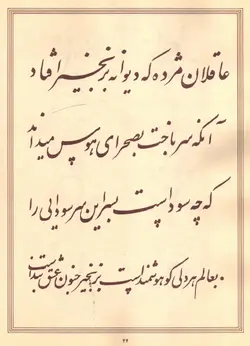 عاقلان مژده که دیوانه بزنجیر افتاد
آنکه سر باخت بصحرای هوس میداند
که چه سوداست بسر این سر سودایی را
بعالم هر دلی کو هوشمند است بزنجیر جنون عشق بند است
۲۶